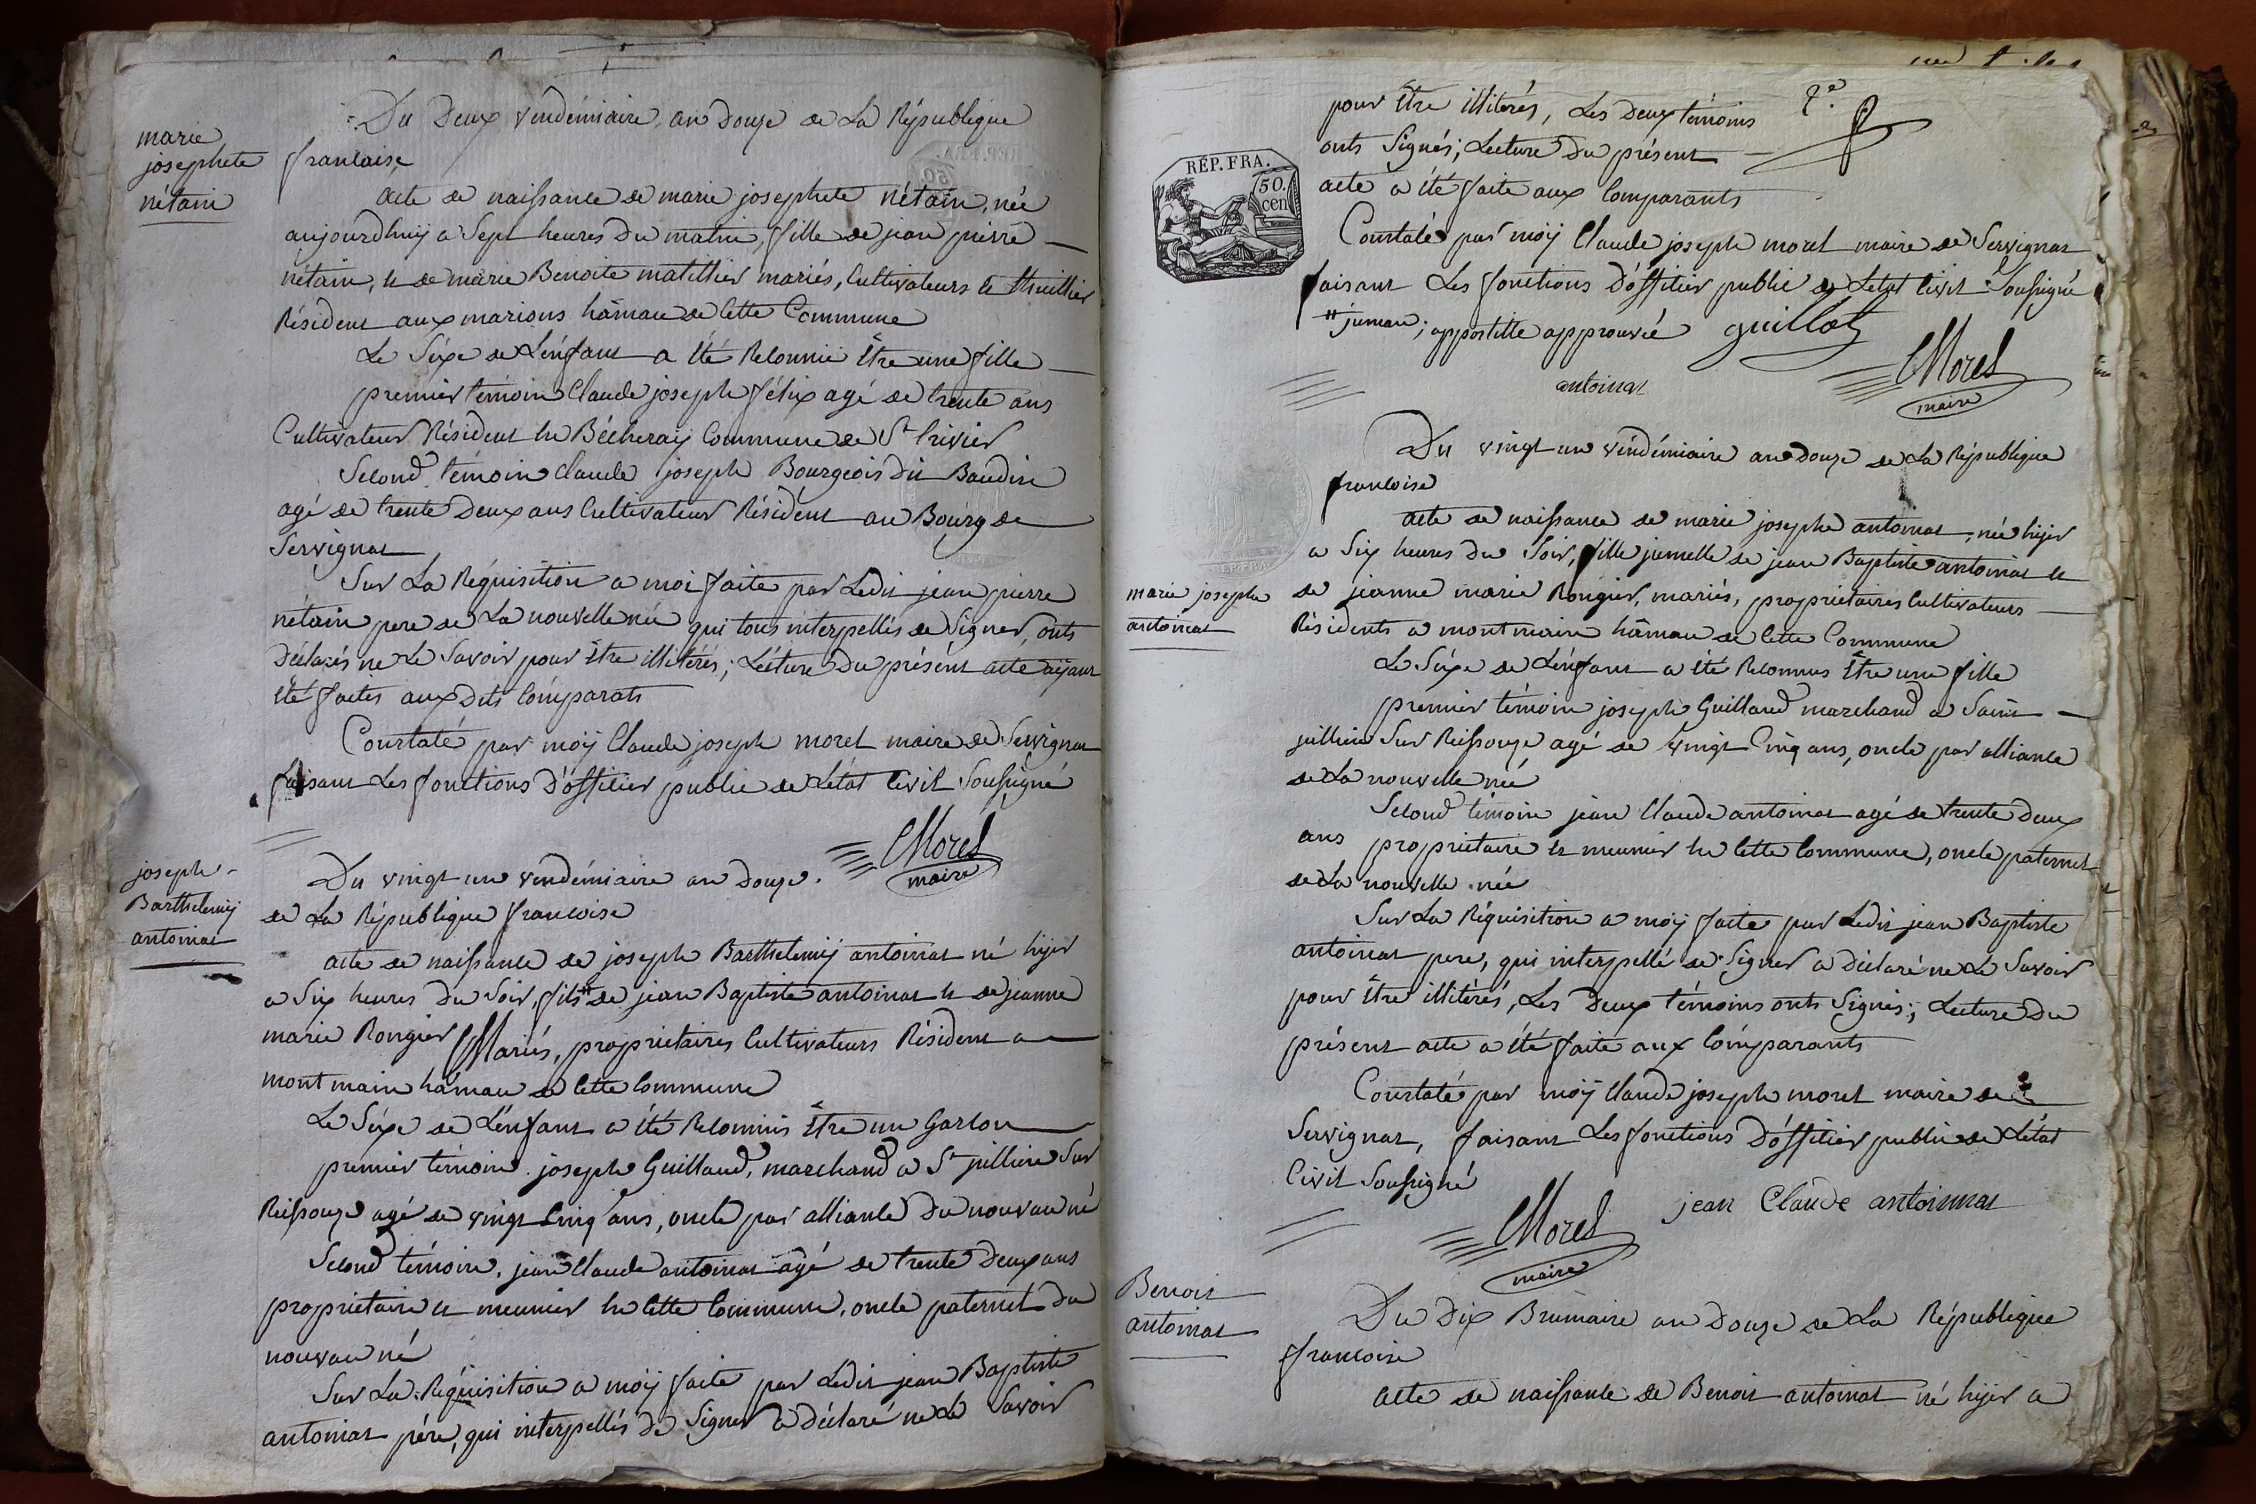 Du Deux vendémiaire an douze de La République
francoise
marie
josephete
nétain
acte de naissance de marie josephete nétain, née
aujourdhuÿ a Sept heures du matin, fille de jean pierre
nétain, et de marie Benoite matillier mariés, Cultivateurs et thuillier
Résident aux marions hâmau de Cette Commune
Le Séxe de L'énfant a été Reconnü Être une fille
premier témoin Claude joseph félix agé de trente ans
Cultivateur Résident en Bécheraÿ Commune de St trivier
Second témoin Claude joseph Bourgeois dit Baudin
agé de trente Deux ans Cultivateur Résident au Bourg de
Servignat
Sur La Réquisition a moi faite par Ledit jean pierre
nétain pere de La nouvelle née qui tous interpellés de Signer, onts
Déclarés ne Le Savoir pour Être illitérés; Lécture Du présént acte aÿant
été faites aux Dits Comparats
Constaté par moÿ Claude joseph morel maire de Servignat
faisant Les fonctions D'officier public de L'état Civil Soussigné
Morel
maire
joseph
Barthelemÿ
antoinat
Du vingt un vendémiaire an douze
de La République francoise
acte de naissance de joseph Barthelemÿ antoinat né hÿer
a Six heures du Soir, fils # de jean Baptiste antoinat et de jeanne
marie Rongier Mariés, propriétaires Cultivateurs Résident a
mont main hâmau de Cette Commune
Le Séxe de L'énfant a été Reconnus Être un Garcon
premier témoin joseph Guillaud, marchand a St jullien Sur
Reissouze agé de vingt Cinq ans, oncle par alliance du nouveau né
Second témoin, jean Claude antoinat agé de trente Deux ans
propriétaire et meunier en Cette Commune, oncle paternel du
nouveau né
Sur La Réquisition a moÿ faite par Ledit jean Baptiste
antoinat pére, qui interpellés de Signer a déclaré ne Le Savoir
pour Être illiterés, Les Deux témoins
onts Signés; Lecture Du présent
acte a été faite aux Comparants
RÉP. FRA.
50.
cen
Constaté par moÿ Claude joseph morel maire de Servignat
faisant Les fonctions D'officier public de L'état Civil Soussigné
# jumau; appostille approuvée guillot
Morel
maire
antoinat
Du vingt un véndémiaire an douze de La République
francoise
marie josephe
antoinat
acte de naissance de marie josephe antoinat, née hÿer
a Six heures du Soir, fille jumelle de jean Baptiste antoinat et
de jeanne marie Rongier, mariés, propriétaires Cultivateurs
Résidents a mont main hâmau de Cette Commune
Le Séxe de L'énfant a été Reconnus Être une fille
premier témoin joseph Guillaud marchand a Saint
jullien Sur Reissouze agé de vingt Cinq ans, oncle par alliance
de La nouvelle née
Second témoin jean Claude antoinat agé de trente deux
ans propriétaire et meunier en Cette Commune, oncle paternel
de La nouvelle née
Sur La Réquisition a moÿ faite par Ledit jean Baptiste
antoinat pere, qui interpellé de Signer a déclaré ne Le Savoir
pour Être illitérés, Les Deux témoins onts Signés; Lecture Du
présent acte a été faite aux Comparants
Constaté par moÿ Claude joseph morel maire de
Servignat, faisant Les fonctions D'officier public de L'état
Civil Soussigné
Morel
maire
jean Claude antoinnat
Benoit
antoinat
Du Dix Brumaire an douze de La République
francoise
acte de naissance de Benoit antoinat né hÿer a